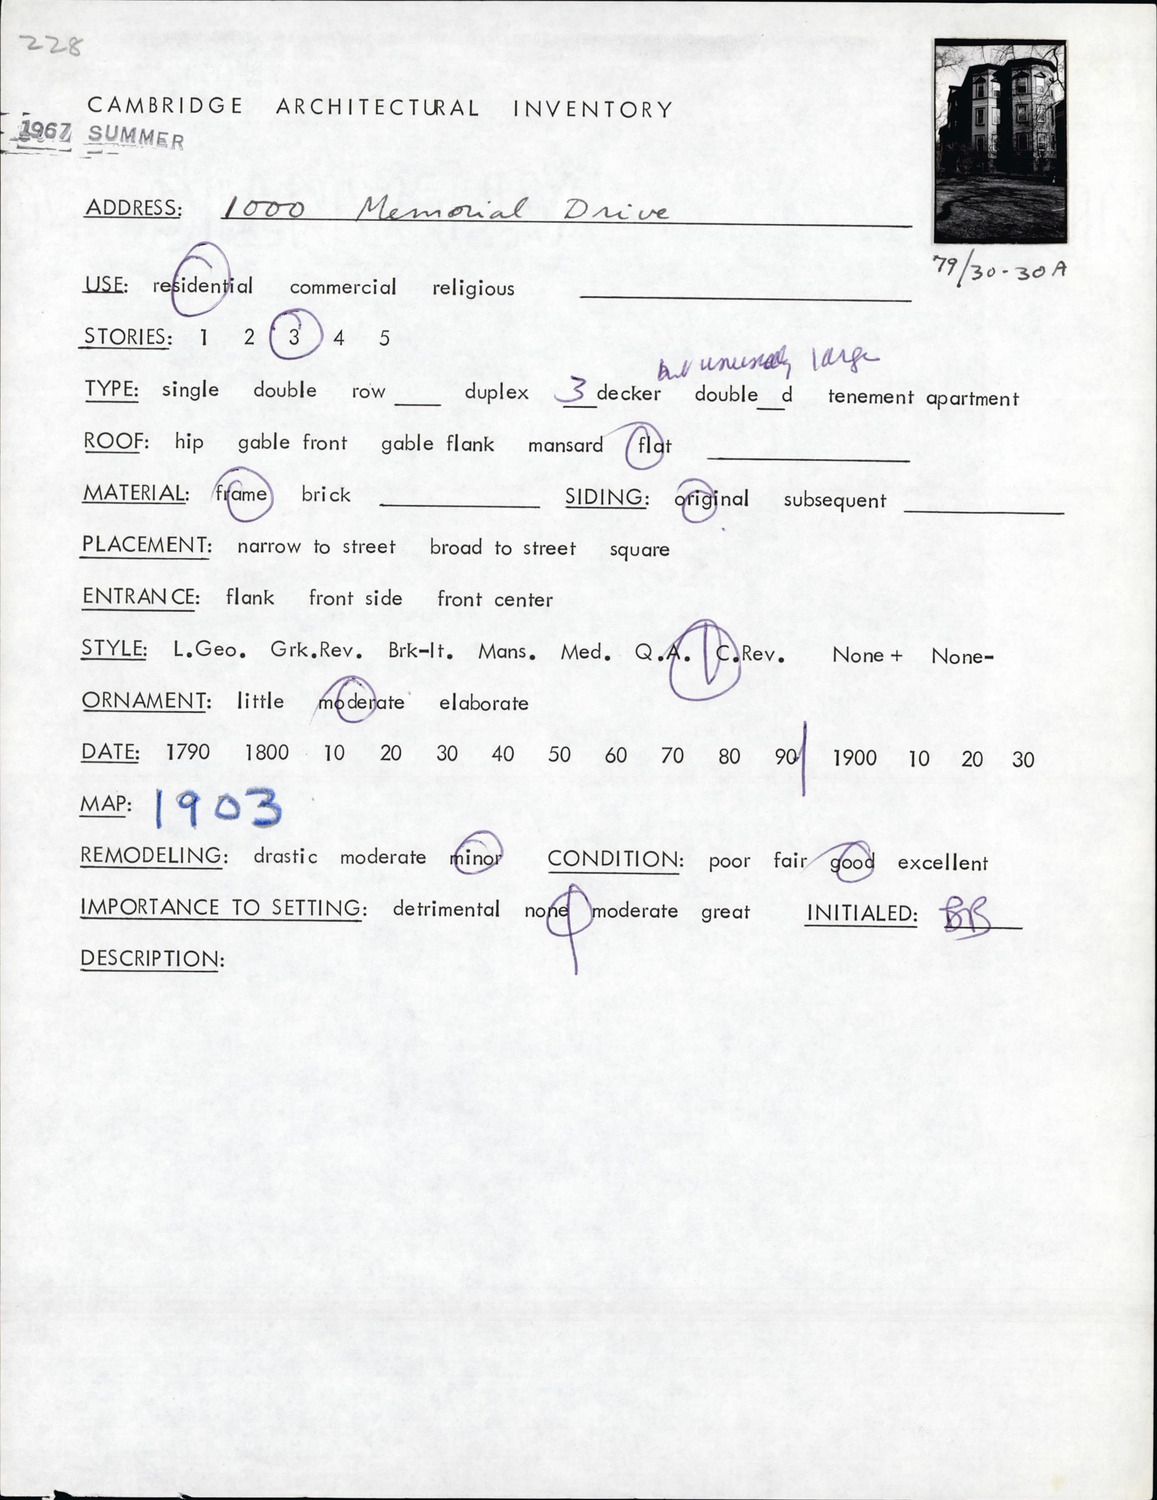 228
CAMBRIDGE ARCHITECTURAL INVENTORY
1967 SUMMER
ADDRESS: 1000 Memorial Drive
79/30-30A
USE: residential commercial religious
STORIES: 1 2 3 4 5
but unusually large
TYPE: single double row ___ duplex 3 decker double __ d tenement apartment
ROOF: hip gable front gable flank mansard flat
MATERIAL: frame brick SIDING: original subsequent
PLACEMENT: narrow to street broad to street square
ENTRANCE: flank front side front center
STYLE: L.Geo. Grk.Rev. Brk-It. Mans. Med. Q.A. C.Rev. None+ None-
ORNAMENT: little moderate elaborate
DATE: 1790 1800 10 20 30 40 50 60 70 80 90 1900 10 20 30
MAP: 1903
REMODELING: drastic moderate minor CONDITION: poor fair good excellent
IMPORTANCE TO SETTING: detrimental none moderate great INITIALED: BB
DESCRIPTION: